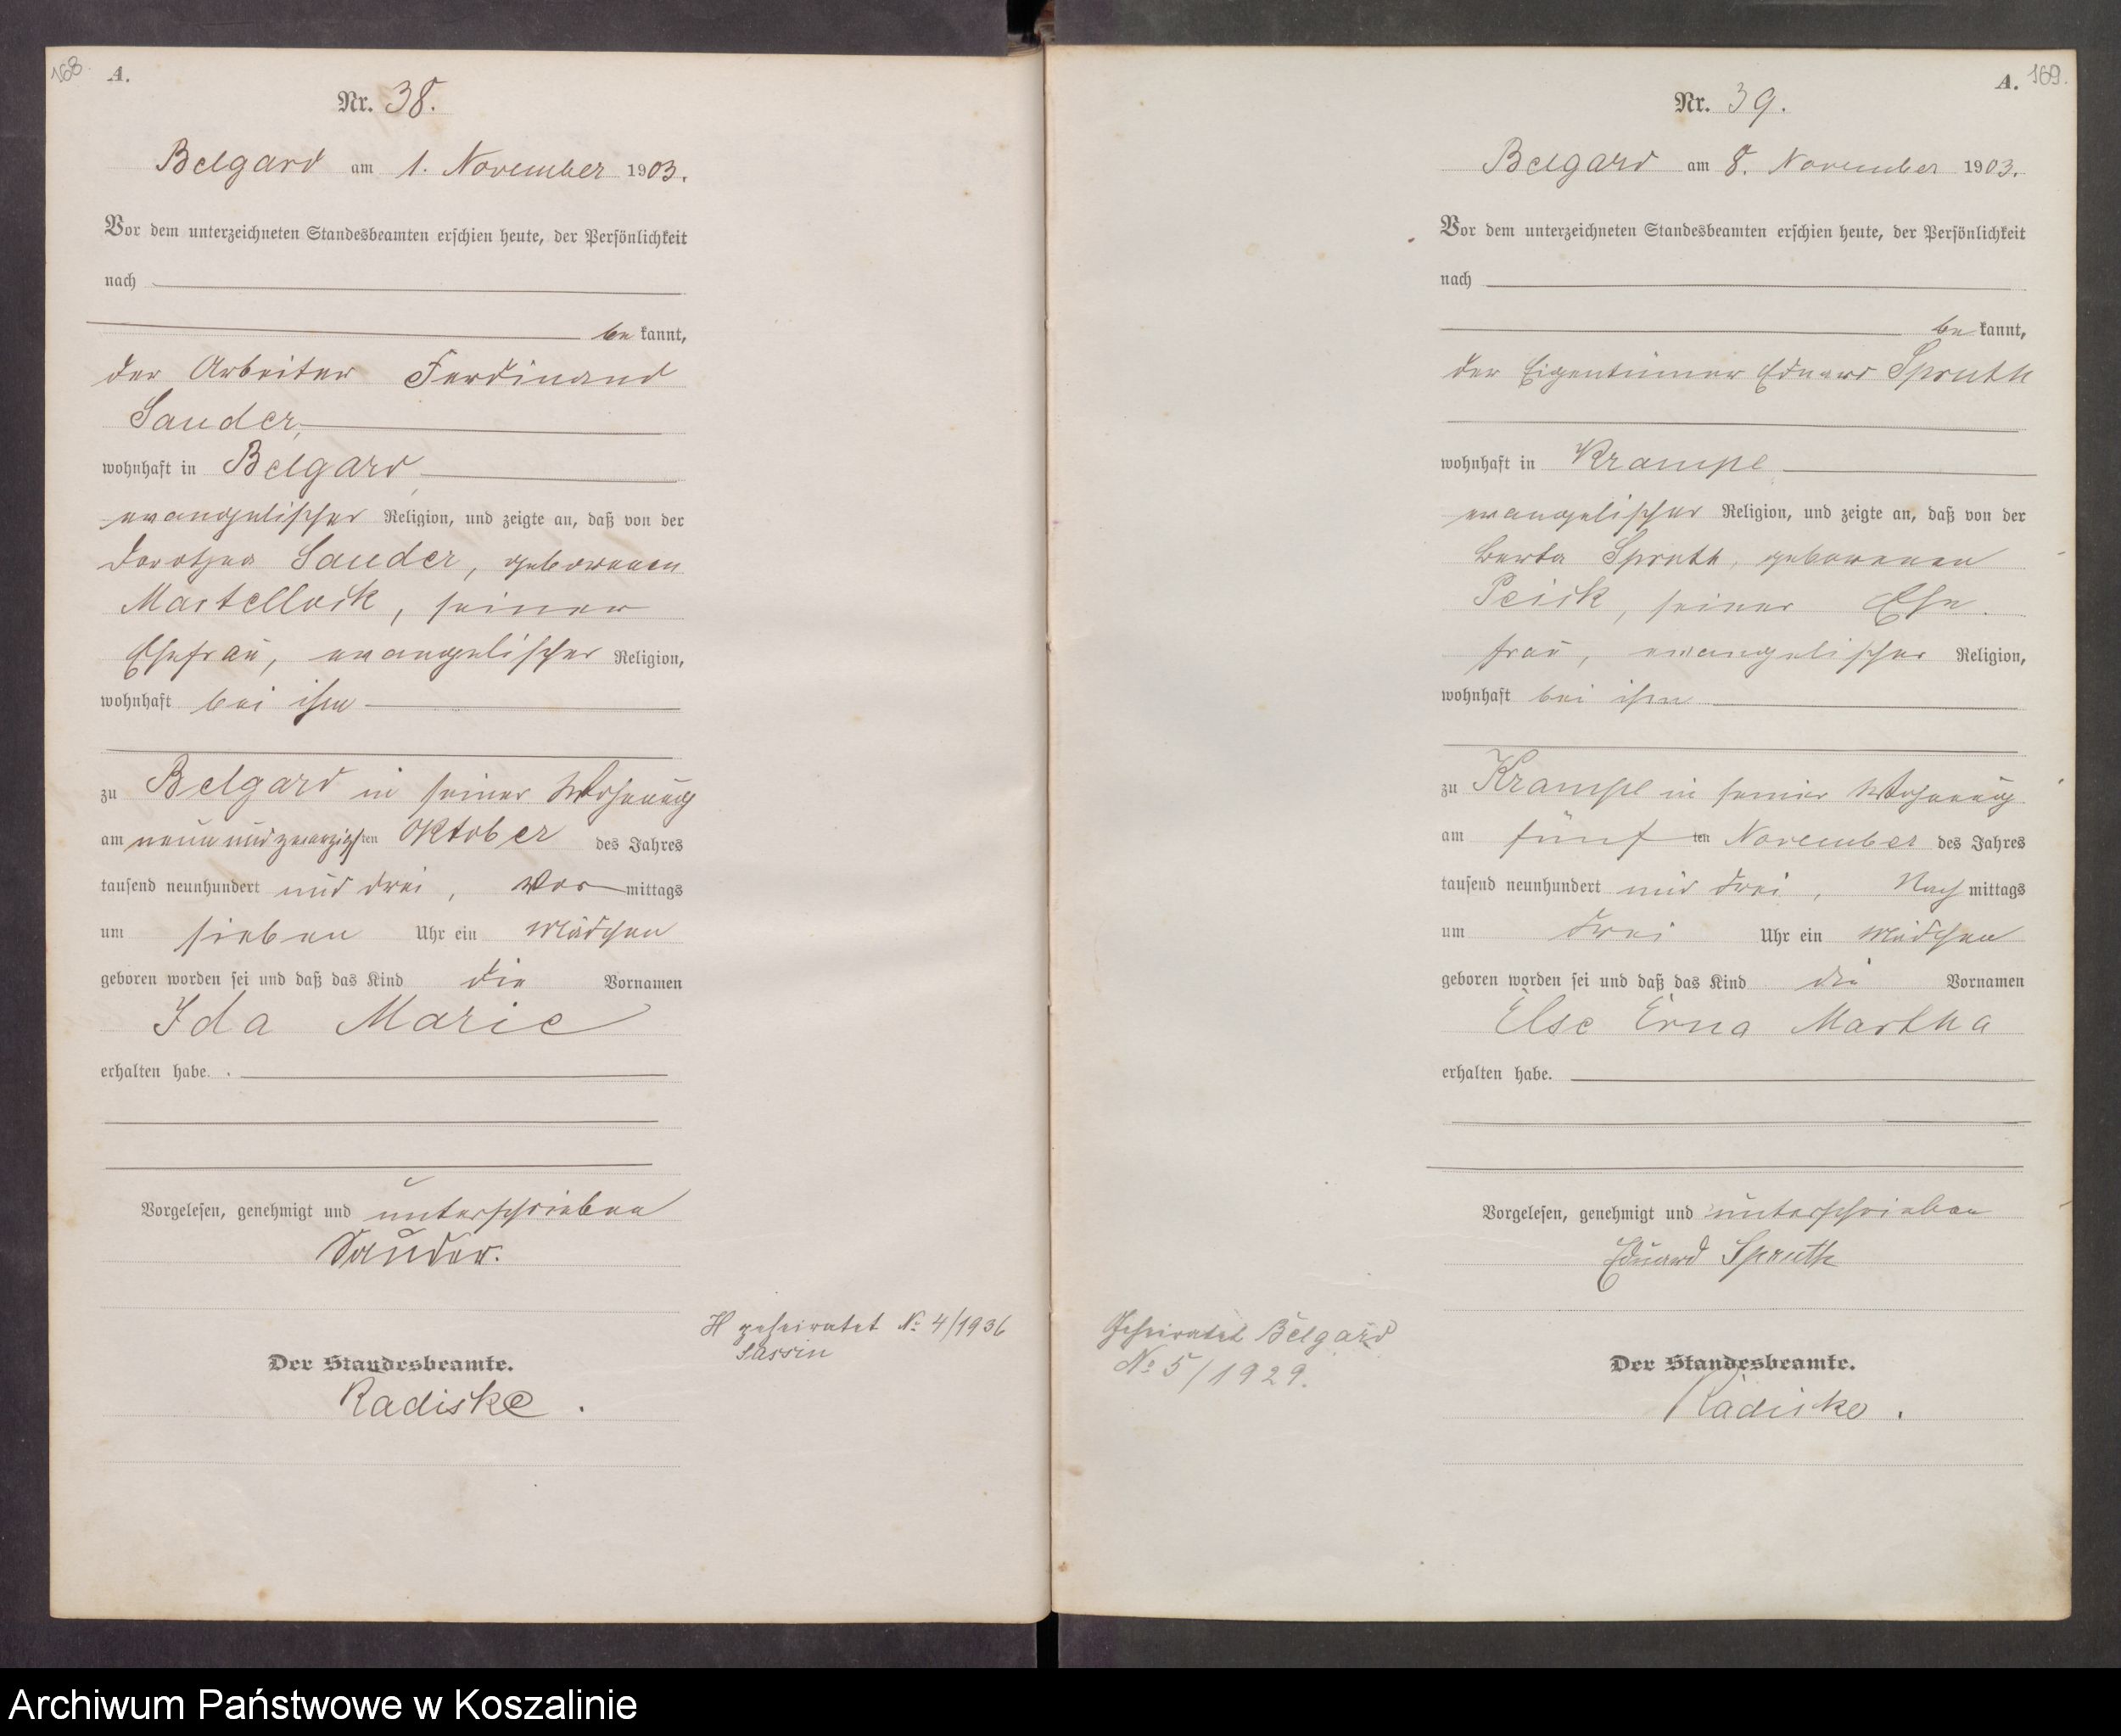 168.
A.
Nr. 38.
Belgard am 1. November 1903.
Vor dem unterzeichneten Standesbeamten erschien heute, der Persönlichkeit
nach
be kannt,
der Arbeiter Ferdinand
Sauder,
wohnhaft in Belgard
evangelischer Religion, und zeigte an, daß von der
Dorothea Sauder, geborenen
seiner
Ehefrau, evangelischer Religion,
wohnhaft bei ihm
zu Belgard in seiner Wohnung
am neun und zwanzigsten Oktober des Jahres
tausend neunhundert und drei, Vor mittags
um sieben Uhr ein Mädchen
geboren worden sei und daß das Kind die Vornamen
Ida Marie
erhalten habe.
Vorgelesen, genehmigt und unterschrieben
Sauder.
H geheiratet No 4/1936
Sassin
Der Standesbeamte.
Radiske.
A. 169.
Nr. 39.
Belgard am 8. November 1903.
Vor dem unterzeichneten Standesbeamten erschien heute, der Persönlichkeit
nach
be kannt,
der Eigentümer Eduard Spruth
wohnhaft in Krampe
evangelischer Religion, und zeigte an, daß von der
Berta Spruth, geborenen
Peick, seiner Ehe
frau, evangelischer Religion,
wohnhaft bei ihm
zu Krampe in seiner Wohnung
am fünften November des Jahres
tausend neunhundert und drei, Nach mittags
um drei Uhr ein Mädchen
geboren worden sei und daß das Kind die Vornamen
Else Erna Martha
erhalten habe.
Vorgelesen, genehmigt und unterschrieben
Eduard Spruth
Geheiratet Belgard
No 5/1929.
Der Standesbeamte.
Radiske.
Archiwum Państwowe w Koszalinie